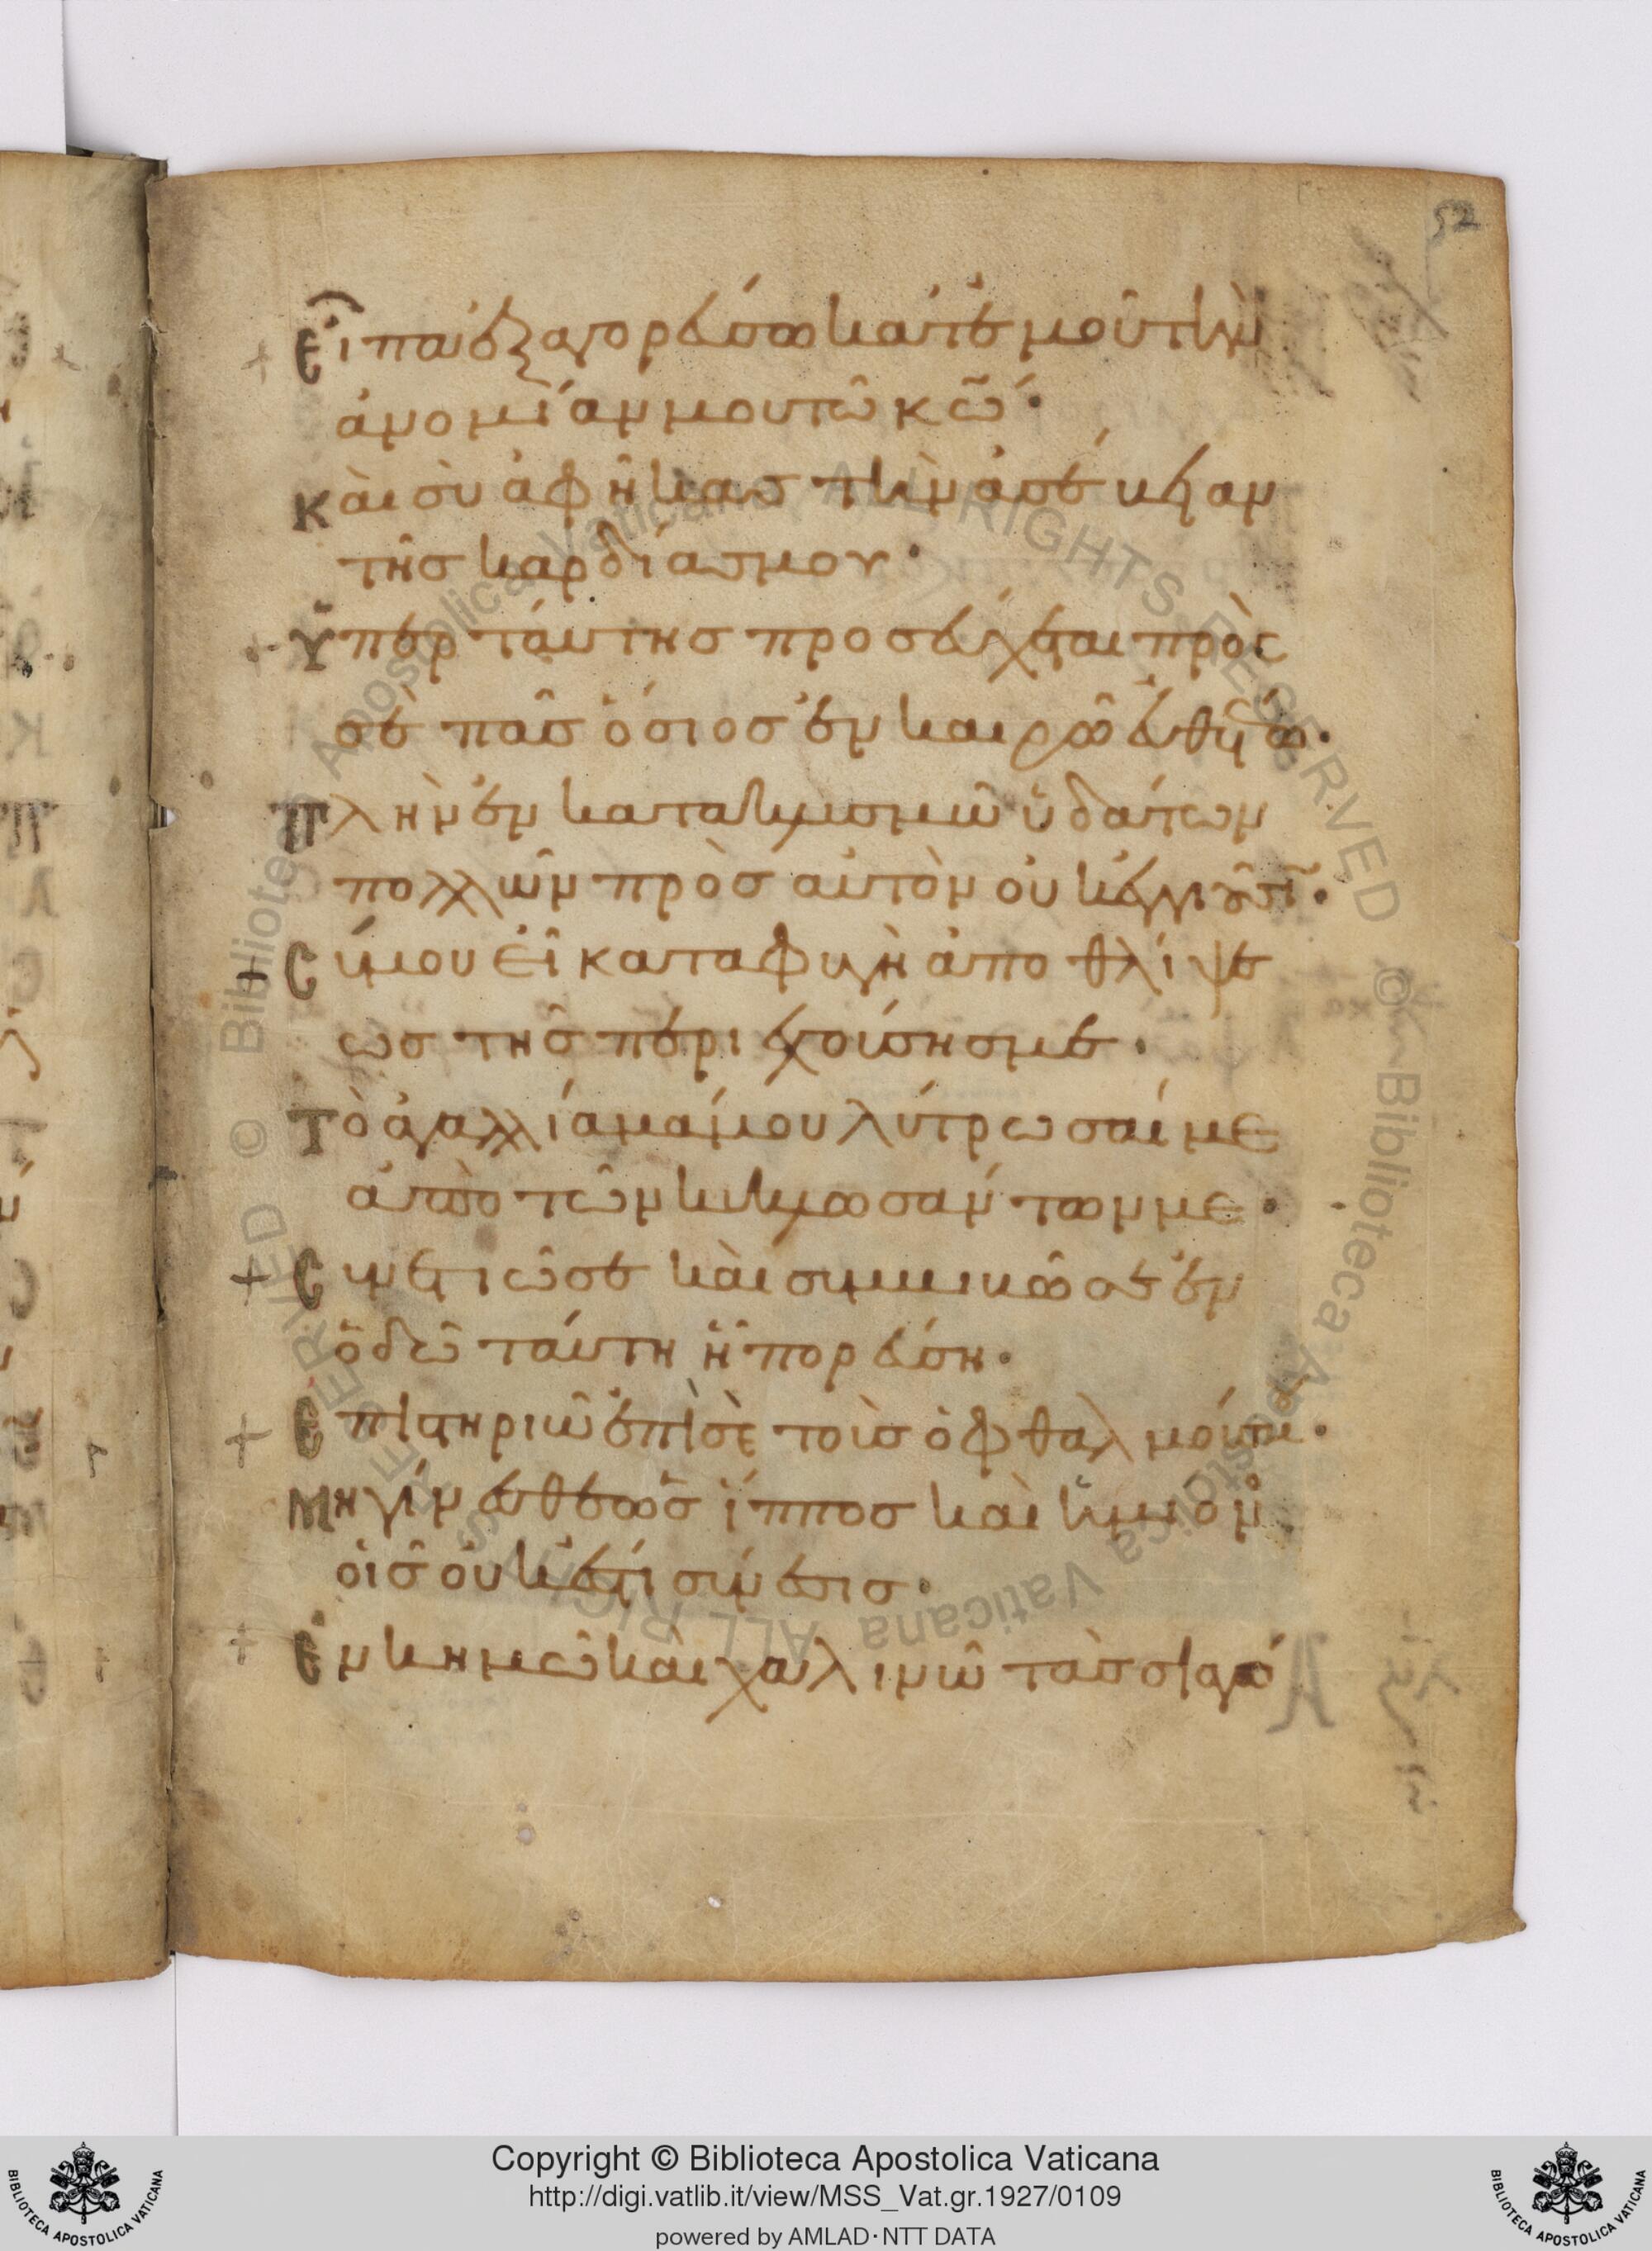 52
Εἶπα ἐξαγορεύσω κατ' ἐμοῦ τὴν
ἀνομίαν μου τῶ κω·
Καὶ σὺ ἀφῆκας τὴν ἀσέβειαν
τῆς καρδίας μου·
Ὑπερ ταύτης προσεύξεται πρὸς
σὲ πᾶς ὅσιος ἐν καιρῶ εὐθέτω·
Πλὴν ἐν κατακλυσμῶ ὑδάτων
πολλῶν πρὸς αὐτὸν οὐκ ἐγγιοῦσι·
Σύ μου εἶ καταφυγὴ ἀπο θλίψε
ως τῆς περιεχούσης με·
Τὸ ἀγαλλίαμά μου λύτρωσαί με
ἀπὸ τῶν κυκλωσάντων με·
Συνετιῶ σε καὶ συμβιβῶ σε ἐν
ὁδῶ ταύτη ἧ πορεύση·
Ἐπιστηριῶ ἐπὶ σὲ τοὺς ὀφθαλμούς μου·
Μὴ γίνεσθε ὡς ἵππος καὶ ἡμίονος
οἷς οὐκ ἔστι σύνεσις·
Ἐν κημῶ καὶ χαλινῶ τὰς σιαγό
Copyright © Biblioteca Apostolica Vaticana
http://digi.vatlib.it/view/MSS_Vat.gr.1927/0109
powered by AMLAD·NTT DATA
BIBLIOTECA APOSTOLICA VATICANA
BIBLIOTECA APOSTOLICA VATICANA